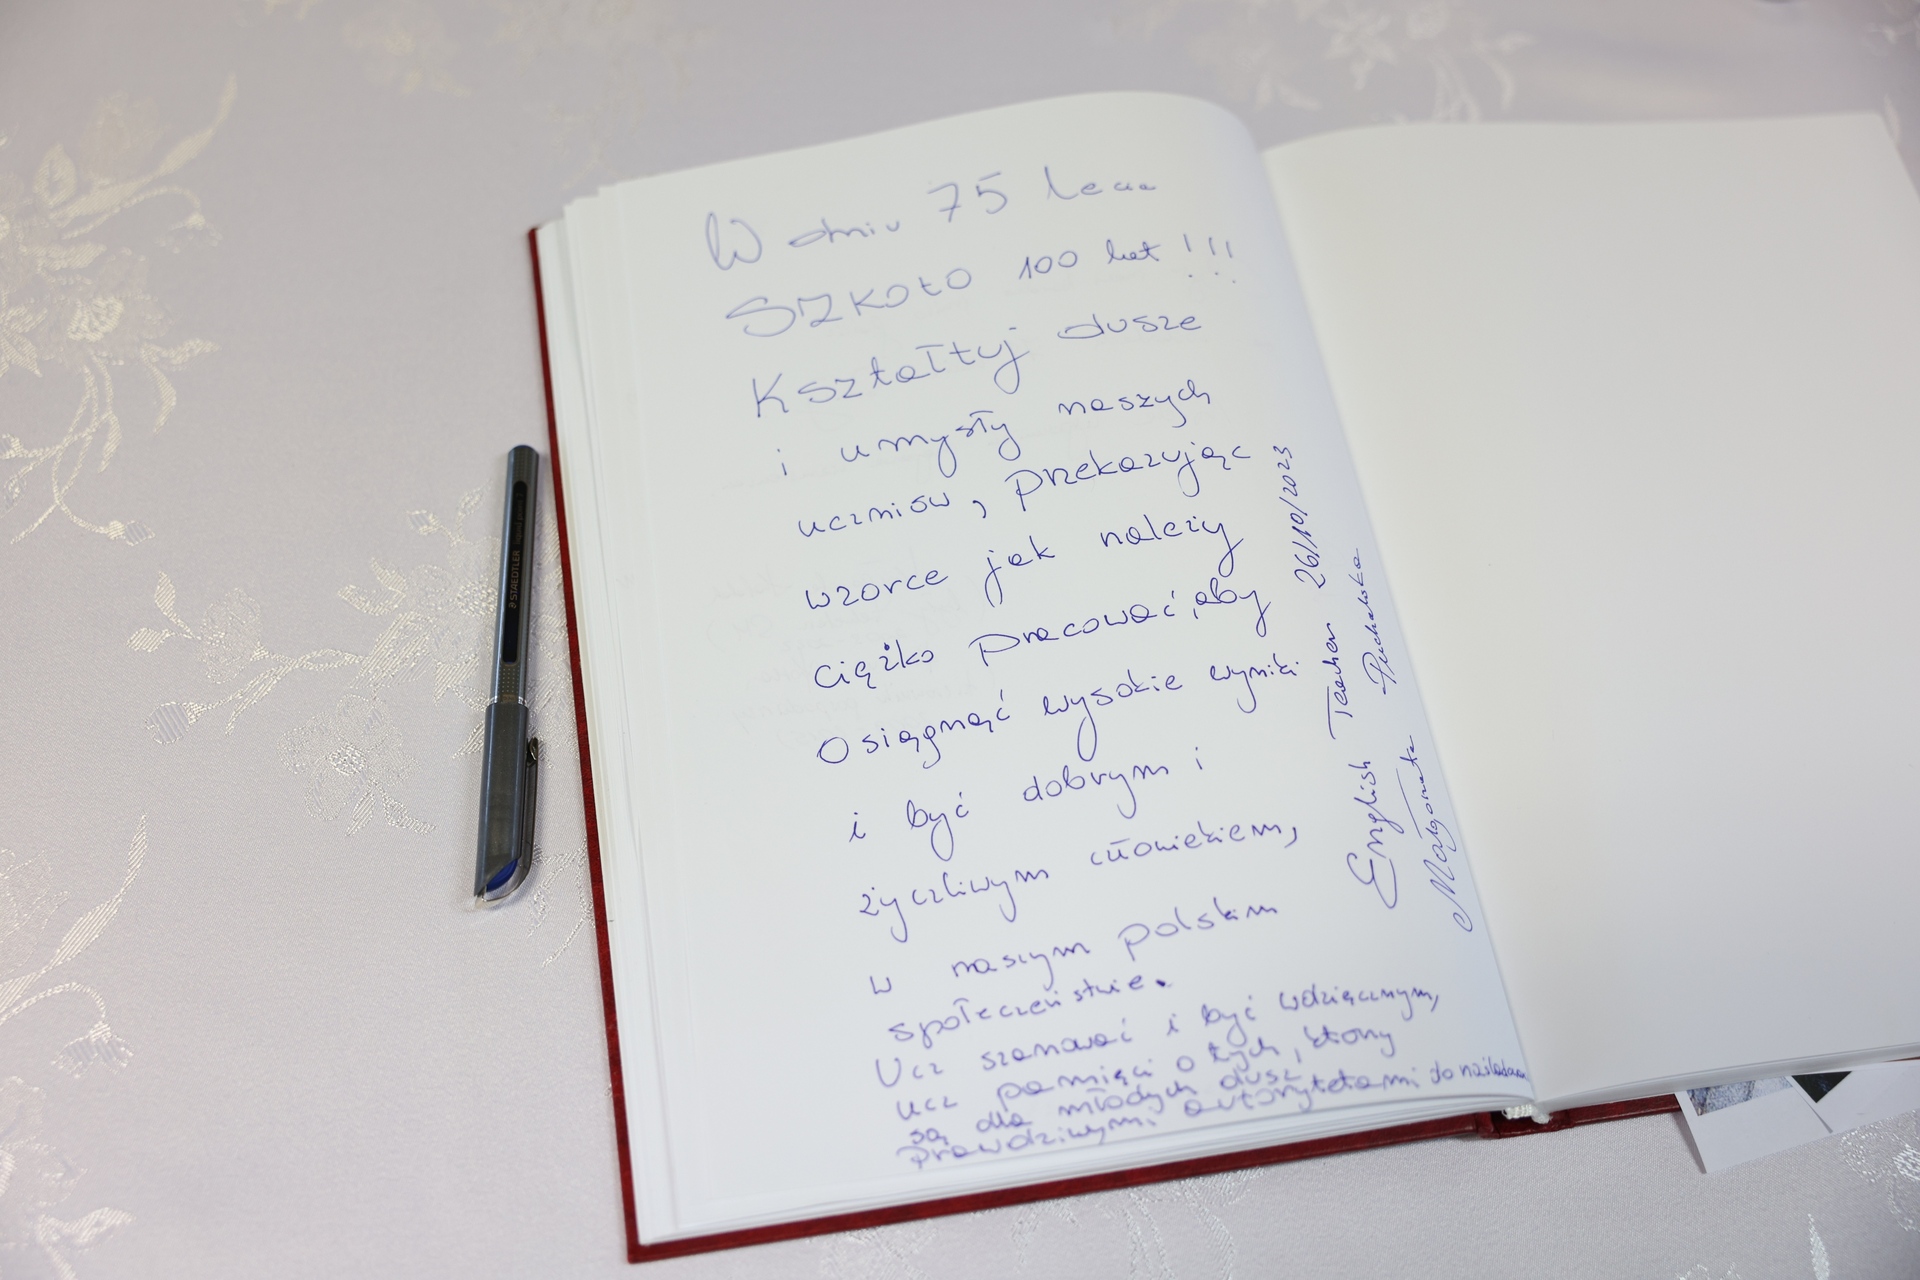 W dniu 75 lecia
Szkoło 100 lat !!!
Kształtuj dusze
i umysły naszych
uczniów, przekazując
wzorce jak należy
ciężko pracować, aby
osiągnąć wysokie wyniki
i być dobrym i
życzliwym człowiekiem,
w naszym polskim
społeczeństwie.
Ucz szanować i być wdzięcznym,
ucz pamięci o tych, którzy
są dla młodych dusz
prawdziwymi autorytetami do naśladowania
English Teacher 26/10/2023
Małgorzata Puchalska
STAEDTLER